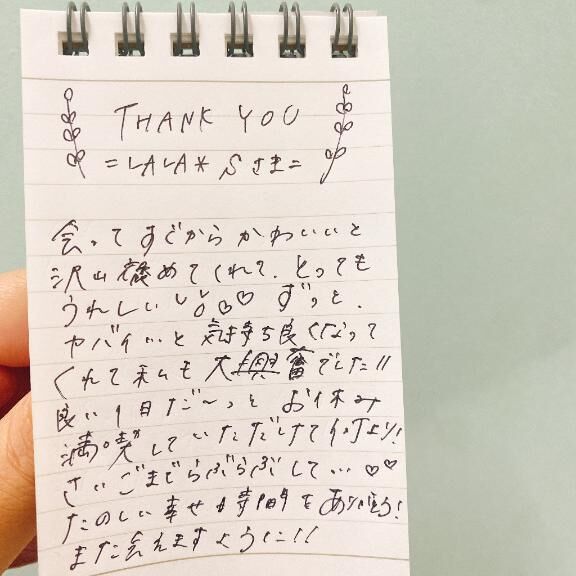 THANK YOU
=LALA* Sさま=
会ってすぐからかわいいと
沢山褒めてくれて、とっても
うれしい♡♡ ずっと、
ヤバイいと気持ち良くなって
くれて私も大興奮でした!!
良い1日だ〜っと お休み
満喫していただけて何より!
さいごまでらぶらぶして…♡♡
たのしい幸せ時間をありがとう!
また会えますように!!